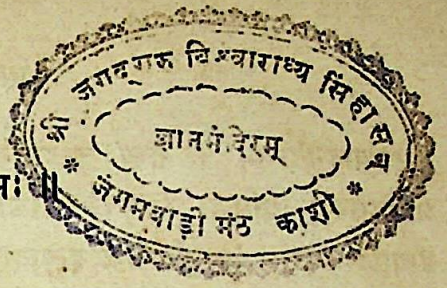 श्री जगदगुरु विश्वाराध्य सिंहासन
ज्ञानमंदिरम्
* जंगमवाड़ी मठ काशी *
मः ॥